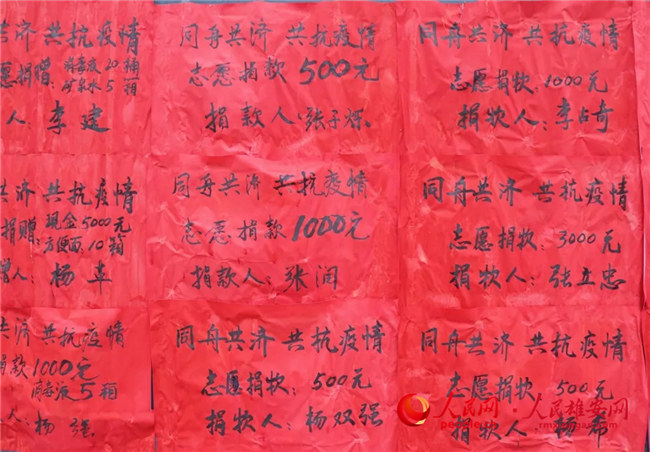 共济 共抗疫情
愿捐赠:消毒液20桶
矿泉水5箱
人:李建
同舟共济 共抗疫情
志愿捐款 500元
捐款人:张子烁
同舟共济 共抗疫情
志愿捐款:1000元
捐款人:李占奇
共济 共抗疫情
捐赠:现金5000元
方便面10箱
赠人:杨草
同舟共济 共抗疫情
志愿捐款 1000元
捐款人:张润
同舟共济 共抗疫情
志愿捐款:3000元
捐款人:张立忠
共济 共抗疫情
捐款1000元
消毒液5箱
人:杨强
同舟共济 共抗疫情
志愿捐款:500元
捐款人:杨双强
同舟共济 共抗疫情
志愿捐款:500元
捐款人:杨希
人民网·人民雄安网